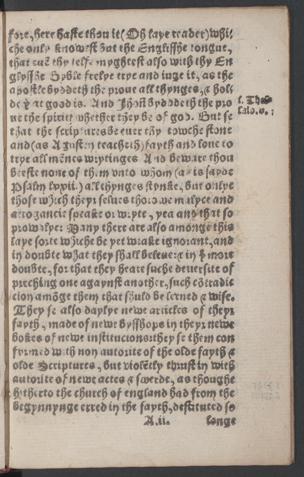 fore, here haste thou it (Oh laye reader) whi/
che only knowest but the Englisshe tongue,
that euē thy selfe myghtest also with thy En
glysshe Byble frelye trye and iuge it, as the
apostle byddeth the proue all thynges, & hol-
de yͭ yͭ good is. And Jhōn byddeth the pro
ue the spirit whether they be of god. But se
that the scripturs be euer thy towche stone
and (as Austen teacheth) fayth and loue to
trye all mennes wrytinges And beware thou
beleue none of them vnto whom (as is sayde
Psalm lxvii.) all thynges stynke, but onlye
those which theyr selues thorowe malyce and
arrogancie speake or wryte, yea and that so
prowdlye. Many there are also amonge this
laye sorte whiche be yet weake ignorant, and
in doubte what they shall beleue: & in yͤ more
doubte, for that they heare suche deuersite of
preching one agaynst another, such cōtradic
cion amōge them that shuld be lerned & wise.
They se also daylye newe articles of theyr
fayth, made of newe Bysshops in theyr newe
bokes of newe institucions: they se them con
fyrmed with non autorite of the olde fayth &
olde Scriptures, but violētly thrust in with
autorite of newe actes & swerde, as thoughe
hytherto the church of england had from the
begynnynge erred in the fayth, destituted so
A.ii. longe
1. Thes
salo. v. :